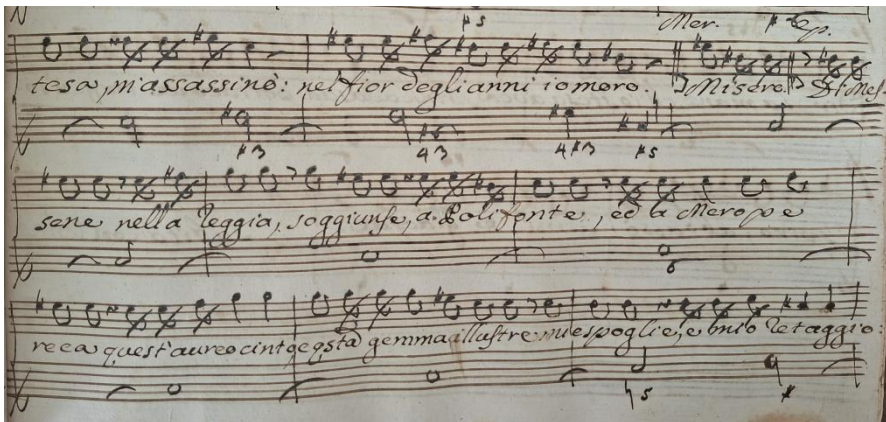 Mer. Ep.
tesa, m'assassinò: nel fior degli anni io moro: Misero. Di Mes-
sene nella Reggia, soggiunse, a Polifonte, ed a Merope
reca quest'aureo cinto e qsta gemma illustre: mie spoglie, e tuo retaggio: